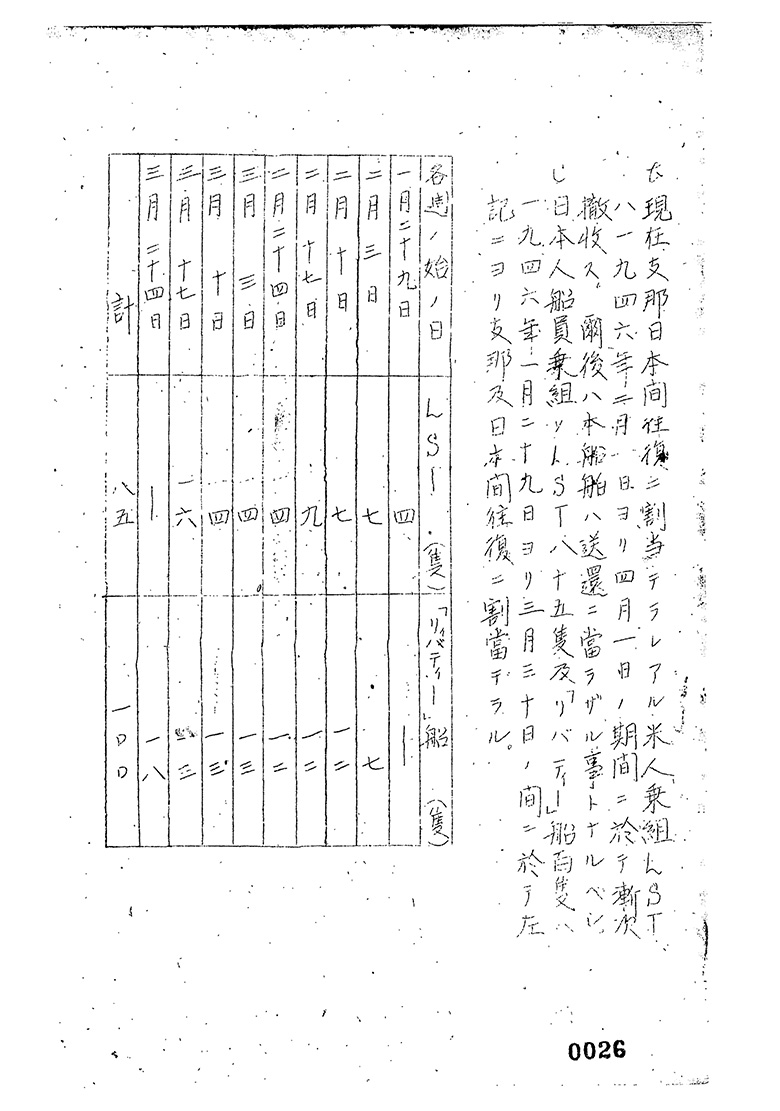 b 現在支那日本間往復ニ割当テラレアル米人乗組LST
ハ一九四六年二月一日ヨリ四月一日ノ期間ニ於テ漸次
撤收ス、爾後ハ本船舶ハ送還ニ當ラザル事トナルベシ
C 日本人船員乗組ノLST八十五隻及「リバティー」船百隻ハ
一九四六年一月二十九日ヨリ三月三十日ノ間ニ於テ左
記ニヨリ支那及日本間往復ニ割當テラル。
各週ノ始ノ日 LST (隻) 「リバティー」船 (隻)
一月二十九日 四 ー
二月三日 七 七
二月十日 七 一二
二月十七日 九 一二
二月二十四日 一四 一二
三月三日 一四 一三
三月十日 一四 一三
三月十七日 一六
三月二十四日 ー 一八
計 八五 一〇〇
0026